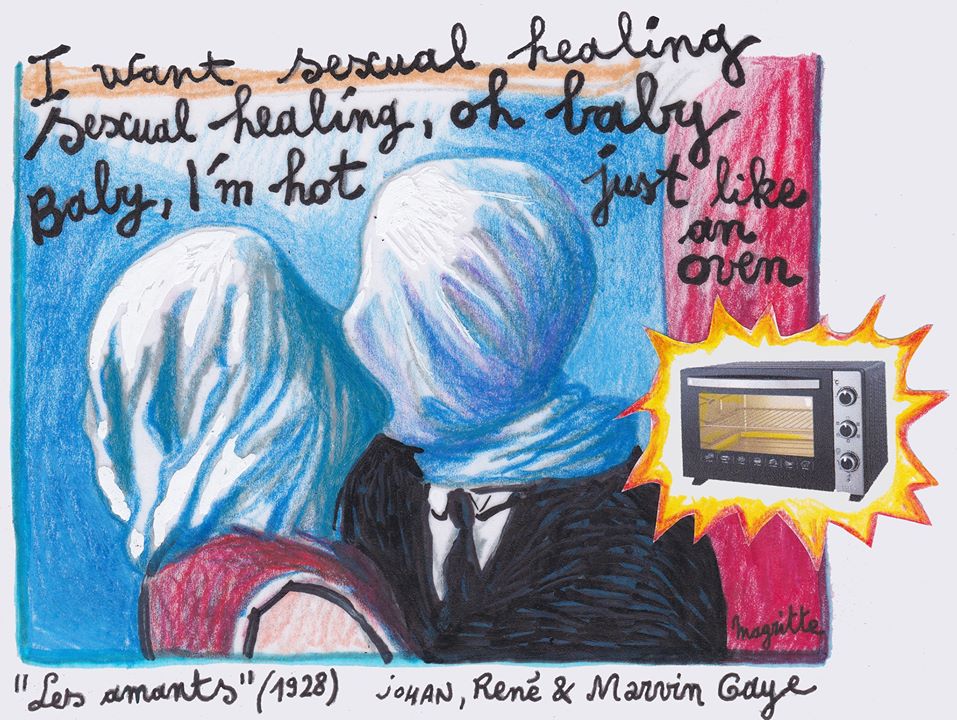 I want sexual healing
sexual healing, oh baby
Baby, I'm hot just like
an
oven
Magritte
"Les amants" (1928) JOHAN, René & Marvin Gaye